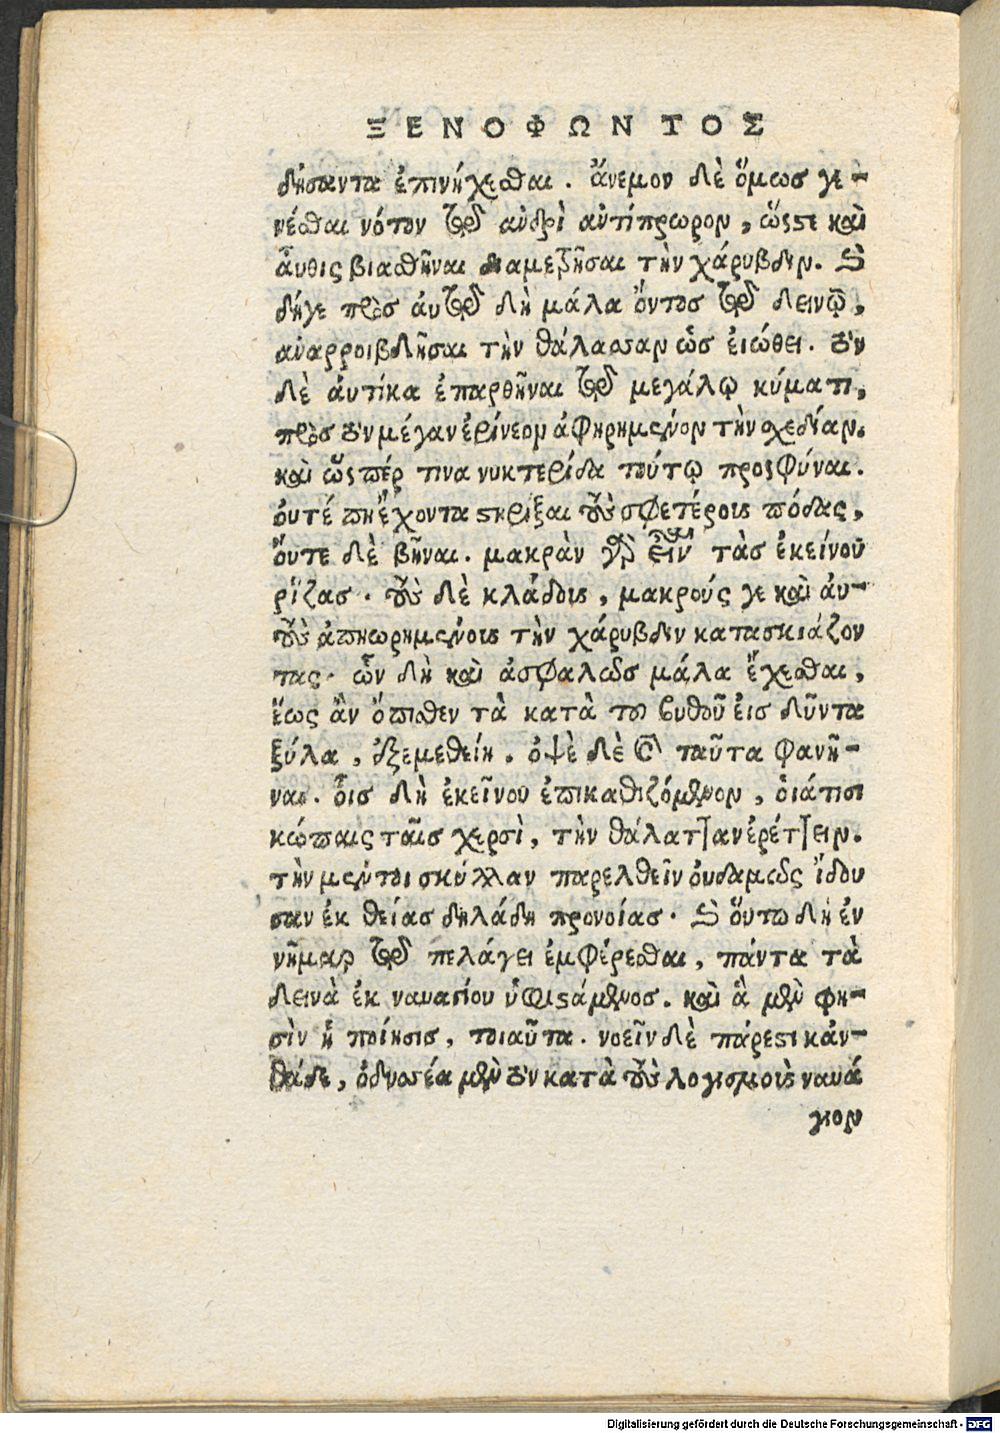 ΞΕΝΟΦΩΝΤΟΣ
δήσαντα ἐπινήχεσθαι. ἄνεμον δὲ ὅμως γε-
νέσθαι νότον τῷ ἀνδρὶ ἀντίπρωρον, ὥστε καὶ
ἆυθις βιασθῆναι διαμεῖψαι τὴν χάρυβδιν. καὶ
δήγε πρὸς ἀυτῷ δὴ μάλα ὄντος τῷ δεινῷ,
ἀναρροιβδῆσαι τὴν θάλασσαν ὡς ἐιώθει. τὸν
δὲ ἀυτίκα ἐπαρθῆναι τῷ μεγάλῳ κύματι,
πρὸς τὸν μέγαν ἐρίνεον ἀφηρημένον τὴν σχεδίαν.
καὶ ὥςπέρ τινα νυκτερίδα τούτῳ προσφύναι.
ὀυτέ πη ἔχοντα στηρίξαι τοὺς σφετέρους πόδας,
ὄυτε δὲ βῆναι. μακρὰν γὰρ εἶναι τὰς ἐκείνου
ῥίζας. τοὺς δὲ κλάδους, μακρούς γε καὶ ἀυ-
τοὺς ἀπηωρημένους τὴν χάρυβδιν κατασκιάζον
τας. ὧν δὴ καὶ ἀσφαλῶς μάλα ἔχεσθαι,
ἕως ἂν ὄπισθεν τὰ κατὰ του βυθοῦ ἐις δῦντα
ξύλα, ἐξεμεθείη. ὀψὲ δὲ ταῦτα φανῆ-
ναι. οἷς δὴ ἐκεῖνον ἐπικαθιζόμενον, ὁιάτισι
κώπαις ταῖς χερσὶ, τὴν θάλατταν ἐρέττειν.
τὴν μέντοι σκύλλαν παρελθεῖν ὀυδαμῶς ἴδου
σαν ἐκ θείας δηλάδη προνοίας. καὶ ὅυτω δὴ ἐν
νῆμαρ τῷ πελάγει ἐμφέρεσθαι, πάντα τὰ
δεινὰ ἐκ ναυαγίου ὑποστάμενος. καὶ ἃ μὲν φη-
σὶν ἡ ποίησις, τοιαῦτα. νοεῖν δὲ πάρεστι κἀν-
θάδε, ὀδυσσέα μὲν τὸν κατὰ τοὺς λογισμοὺς ναυά
γιον
Digitalisierung gefördert durch die Deutsche Forschungsgemeinschaft - DFG